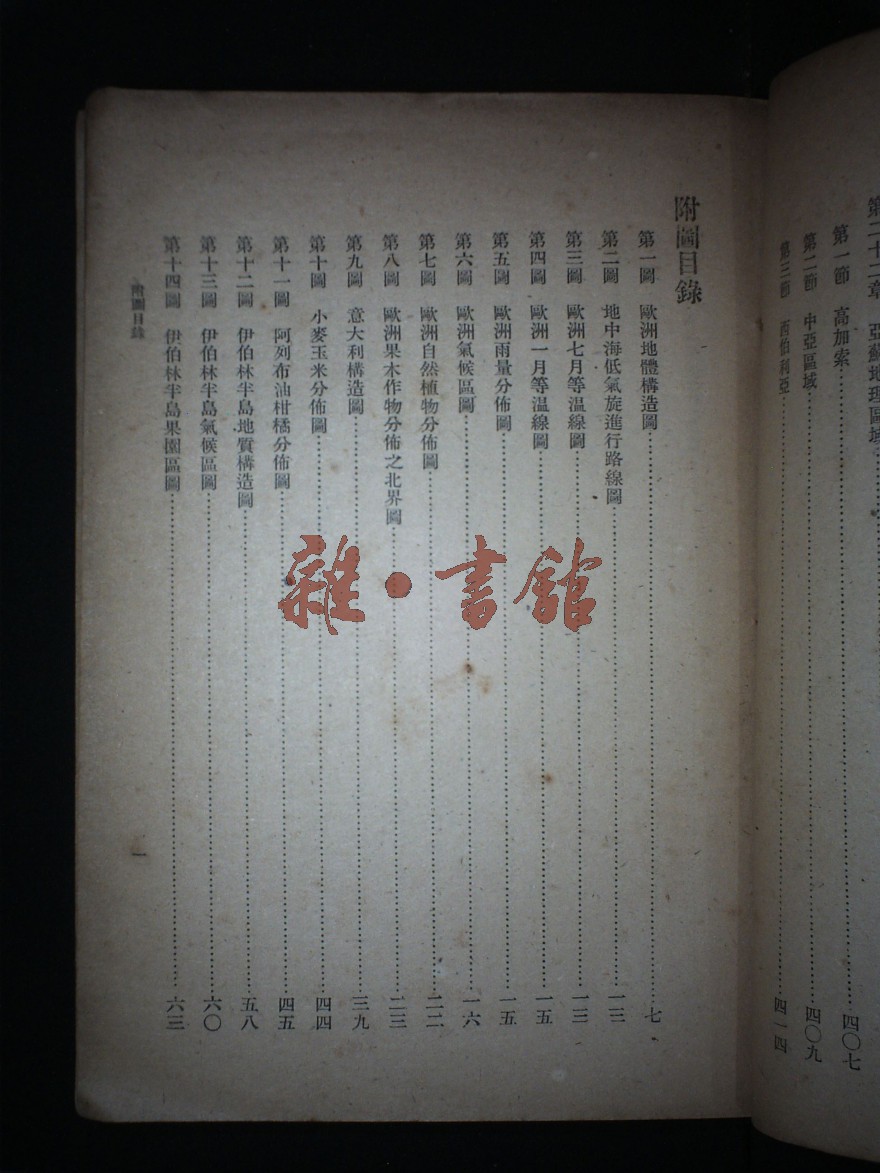 第二十二章 亞蘇地理區域
第一節 高加索 四〇七
第二節 中亞區域 四〇九
第三節 西伯利亞 四一四
附圖目錄
第一圖 歐洲地體構造圖 七
第二圖 地中海低氣旋進行路線圖 一三
第三圖 歐洲七月等溫線圖 一三
第四圖 歐洲一月等溫線圖 一五
第五圖 歐洲雨量分佈圖 一五
第六圖 歐洲氣候區圖 一六
第七圖 歐洲自然植物分佈圖 二二
第八圖 歐洲果木作物分佈之北界圖 二三
第九圖 意大利構造圖 三九
第十圖 小麥玉米分佈圖 四四
第十一圖 阿列布油柑橘分佈圖 四五
第十二圖 伊伯林半島地質構造圖 五八
第十三圖 伊伯林半島氣候區圖 六〇
第十四圖 伊伯林半島果園區圖 六三
附圖目錄
一
雜·書館